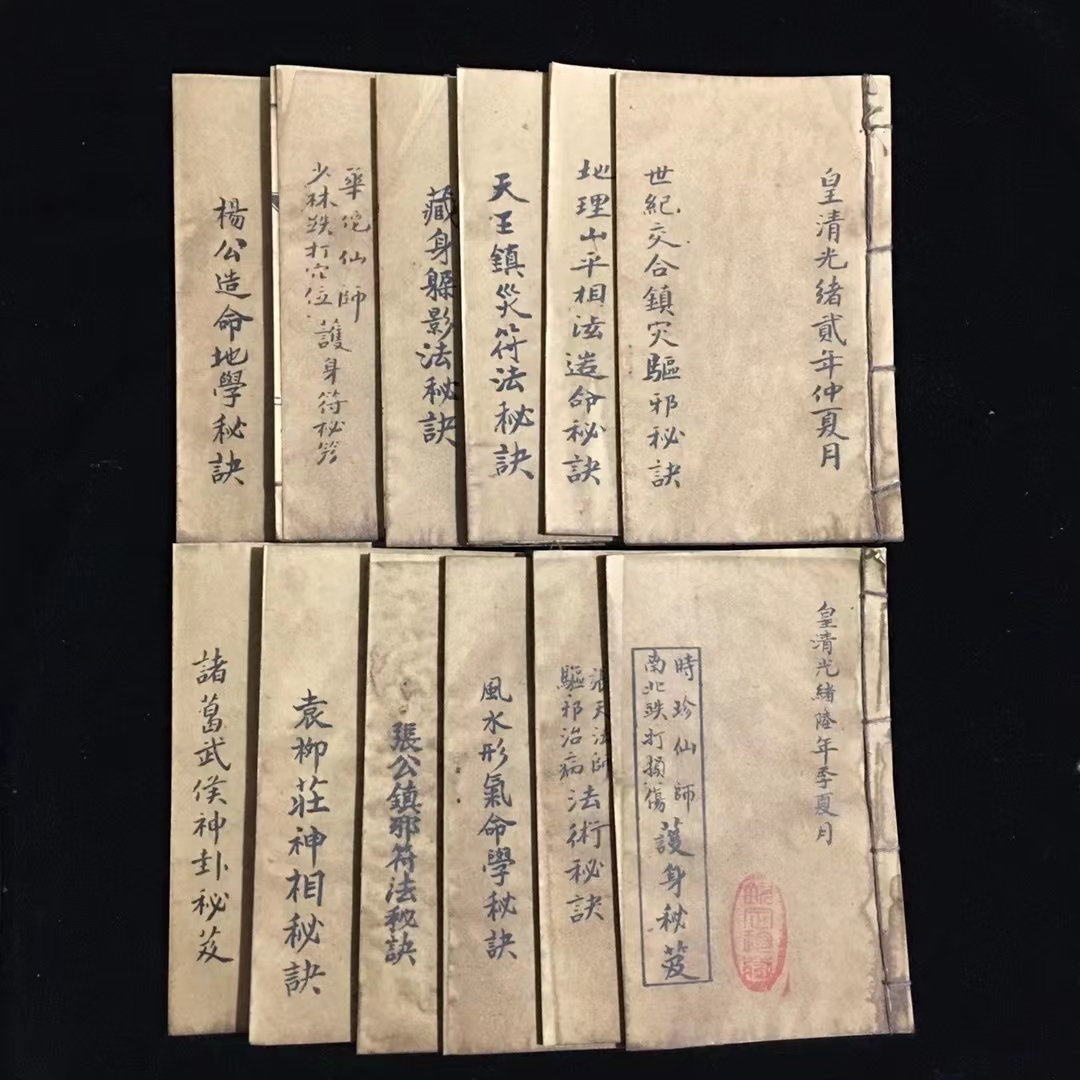 皇清光緒貳年仲夏月
世紀交合鎮灾驅邪秘訣
地理山平相法造命秘訣
天王鎮災符法秘訣
藏身躲影法秘訣
華佗仙師
少林跌打穴位護身符秘笈
楊公造命地學秘訣
皇清光緒陸年季夏月
時珍仙師
南北跌打損傷護身秘笈
張天法師
驅邪治病法術秘訣
風水形氣命學秘訣
張公鎮邪符法秘訣
袁柳莊神相秘訣
諸葛武侯神卦秘笈